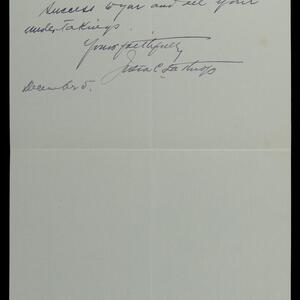 Success to you and all your
undertakings.
Yours faithfully
Julia C. Lathrop
December 5.